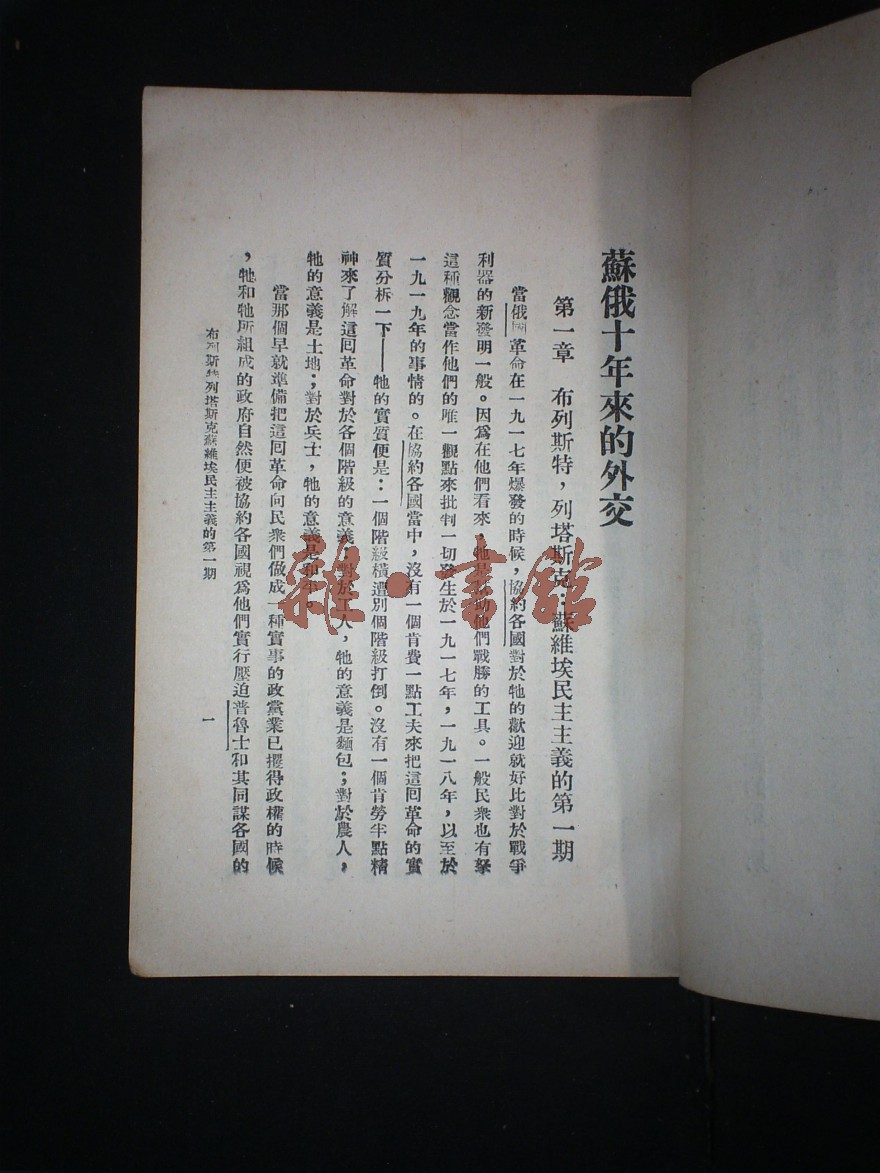 蘇俄十年來的外交
第一章　布列斯特，列塔斯克：蘇維埃民主主義的第一期
當俄國革命在一九一七年爆發的時候，協約各國對於牠的歡迎就好比對於戰爭
利器的新發明一般。因爲在他們看來，牠是幫助他們戰勝的工具。一般民衆也有拏
這種觀念當作他們的唯一觀點來批判一切發生於一九一七年，一九一八年，以至於
一九一九年的事情的。在協約各國當中，沒有一個肯費一點工夫來把這回革命的實
質分析一下——牠的實質便是：一個階級橫遭別個階級打倒。沒有一個肯勞半點精
神來了解這回革命對於各個階級的意義：對於工人，牠的意義是麵包；對於農人，
牠的意義是土地；對於兵士，牠的意義是和平。
當那個早就準備把這回革命向民衆們做成一種實事的政黨業已攫得政權的時候
，牠和牠所組成的政府自然便被協約各國視爲他們實行壓迫普魯士和其同謀各國的
布列斯特列塔斯克蘇維埃民主主義的第一期
一
雜·書館